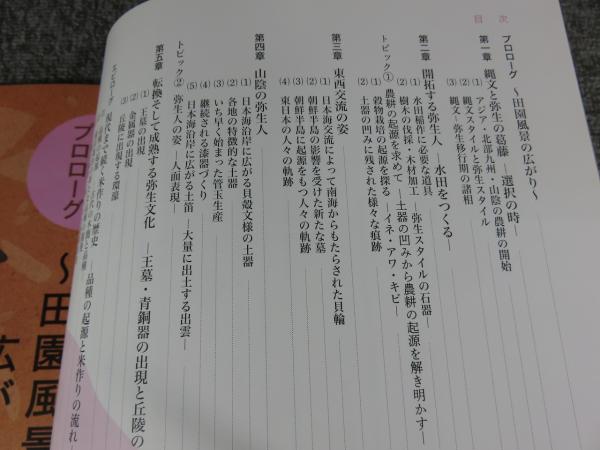 目次
プロローグ 〜田園風景の広がり〜
第一章 縄文と弥生の葛藤 ―選択の時―
(1) アジア・北部九州・山陰の農耕の開始
(2) 縄文スタイルと弥生スタイル
(3) 縄文―弥生移行期の諸相
第二章 開拓する弥生人 ―水田をつくる―
(1) 水田稲作に必要な道具 ―弥生スタイルの石器―
(2) 樹木の伐採・木材加工
トピック① 農耕の起源を求めて ―土器の凹みから農耕の起源を解き明かす―
(1) 穀物栽培の起源を探る ―イネ・アワ・キビ―
(2) 土器の凹みに残された様々な痕跡
第三章 東西交流の姿
(1) 日本海交流によって南海からもたらされた貝輪
(2) 朝鮮半島の影響を受けた新たな墓
(3) 朝鮮半島に起源をもつ人々の軌跡
(4) 東日本の人々の軌跡
第四章 山陰の弥生人
(1) 日本海沿岸に広がる貝殻文様の土器
(2) 各地の特徴的な土器
(3) いち早く始まった管玉生産
(4) 継続される漆器づくり
(5) 日本海沿岸に広がる土笛 ―大量に出土する出雲―
トピック② 弥生人の姿 ―人面表現―
第五章 転換そして成熟する弥生文化 ―王墓・青銅器の出現と丘陵の
(1) 王墓の出現
(2) 金属器の出現
(3) 丘陵に出現する環壕
エピローグ 現代まで続く米作りの歴史 ―品種の起源と米作りの流れ―
プロローグ
〜田園風景
広が